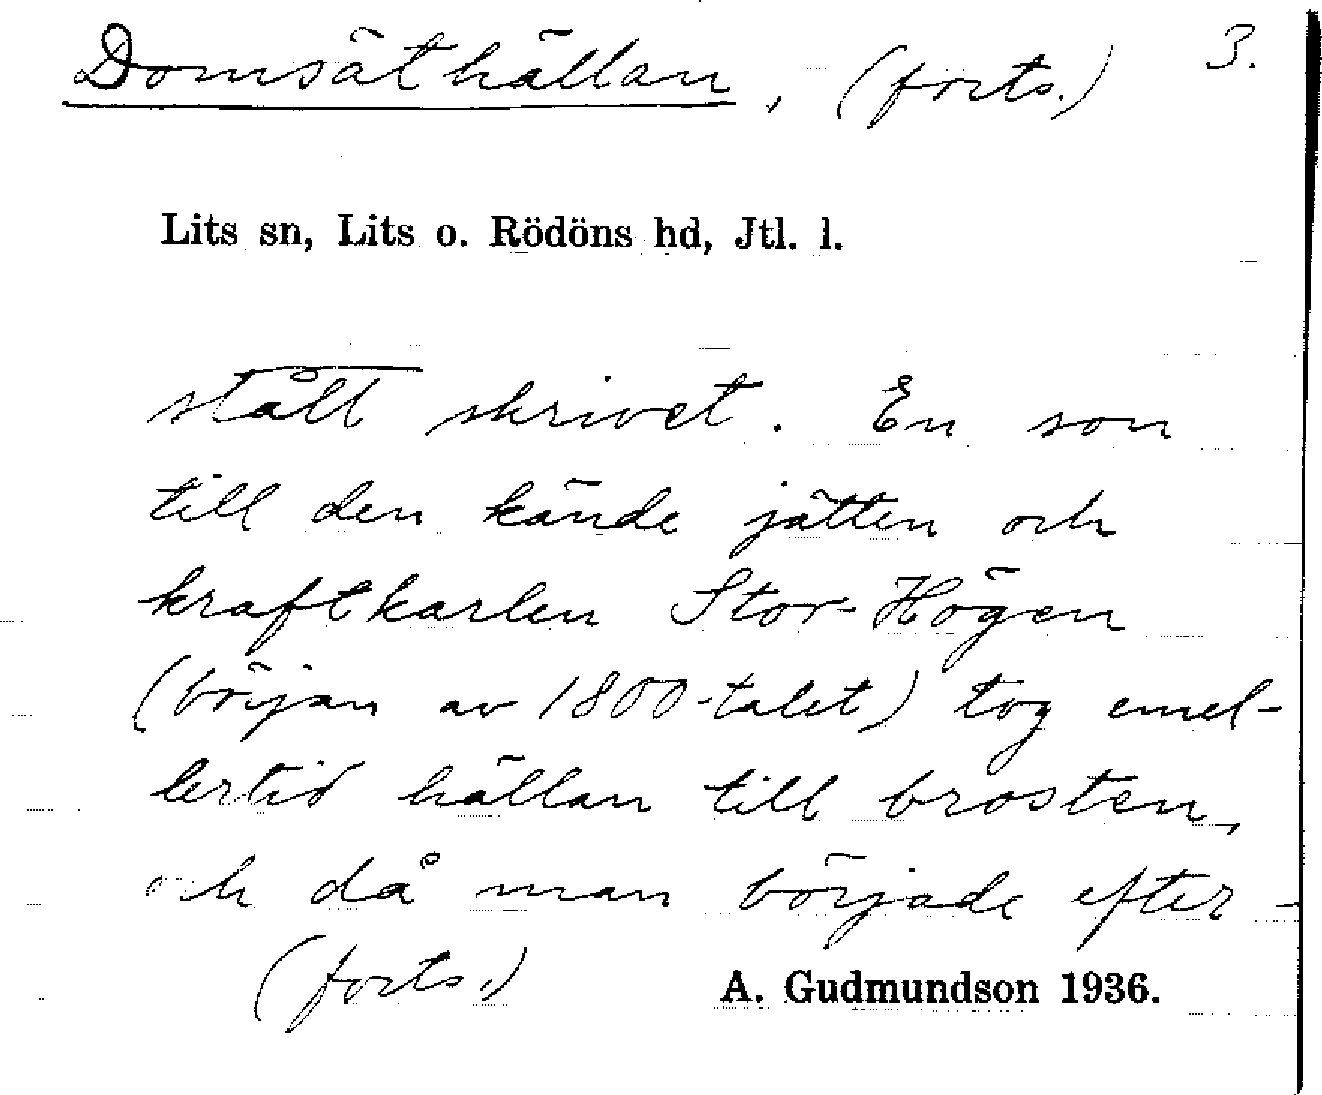 Domsäthällan, (forts.) 3.
Lits sn, Lits o. Rödöns hd, Jtl. l.
stått skrivet. En son
till den kände jätten och
kraftkarlen Stor-Högen
(början av 1800-talet) tog emel-
lertid hällan till brosten,
och då man började efter-
(forts.)
A. Gudmundson 1936.